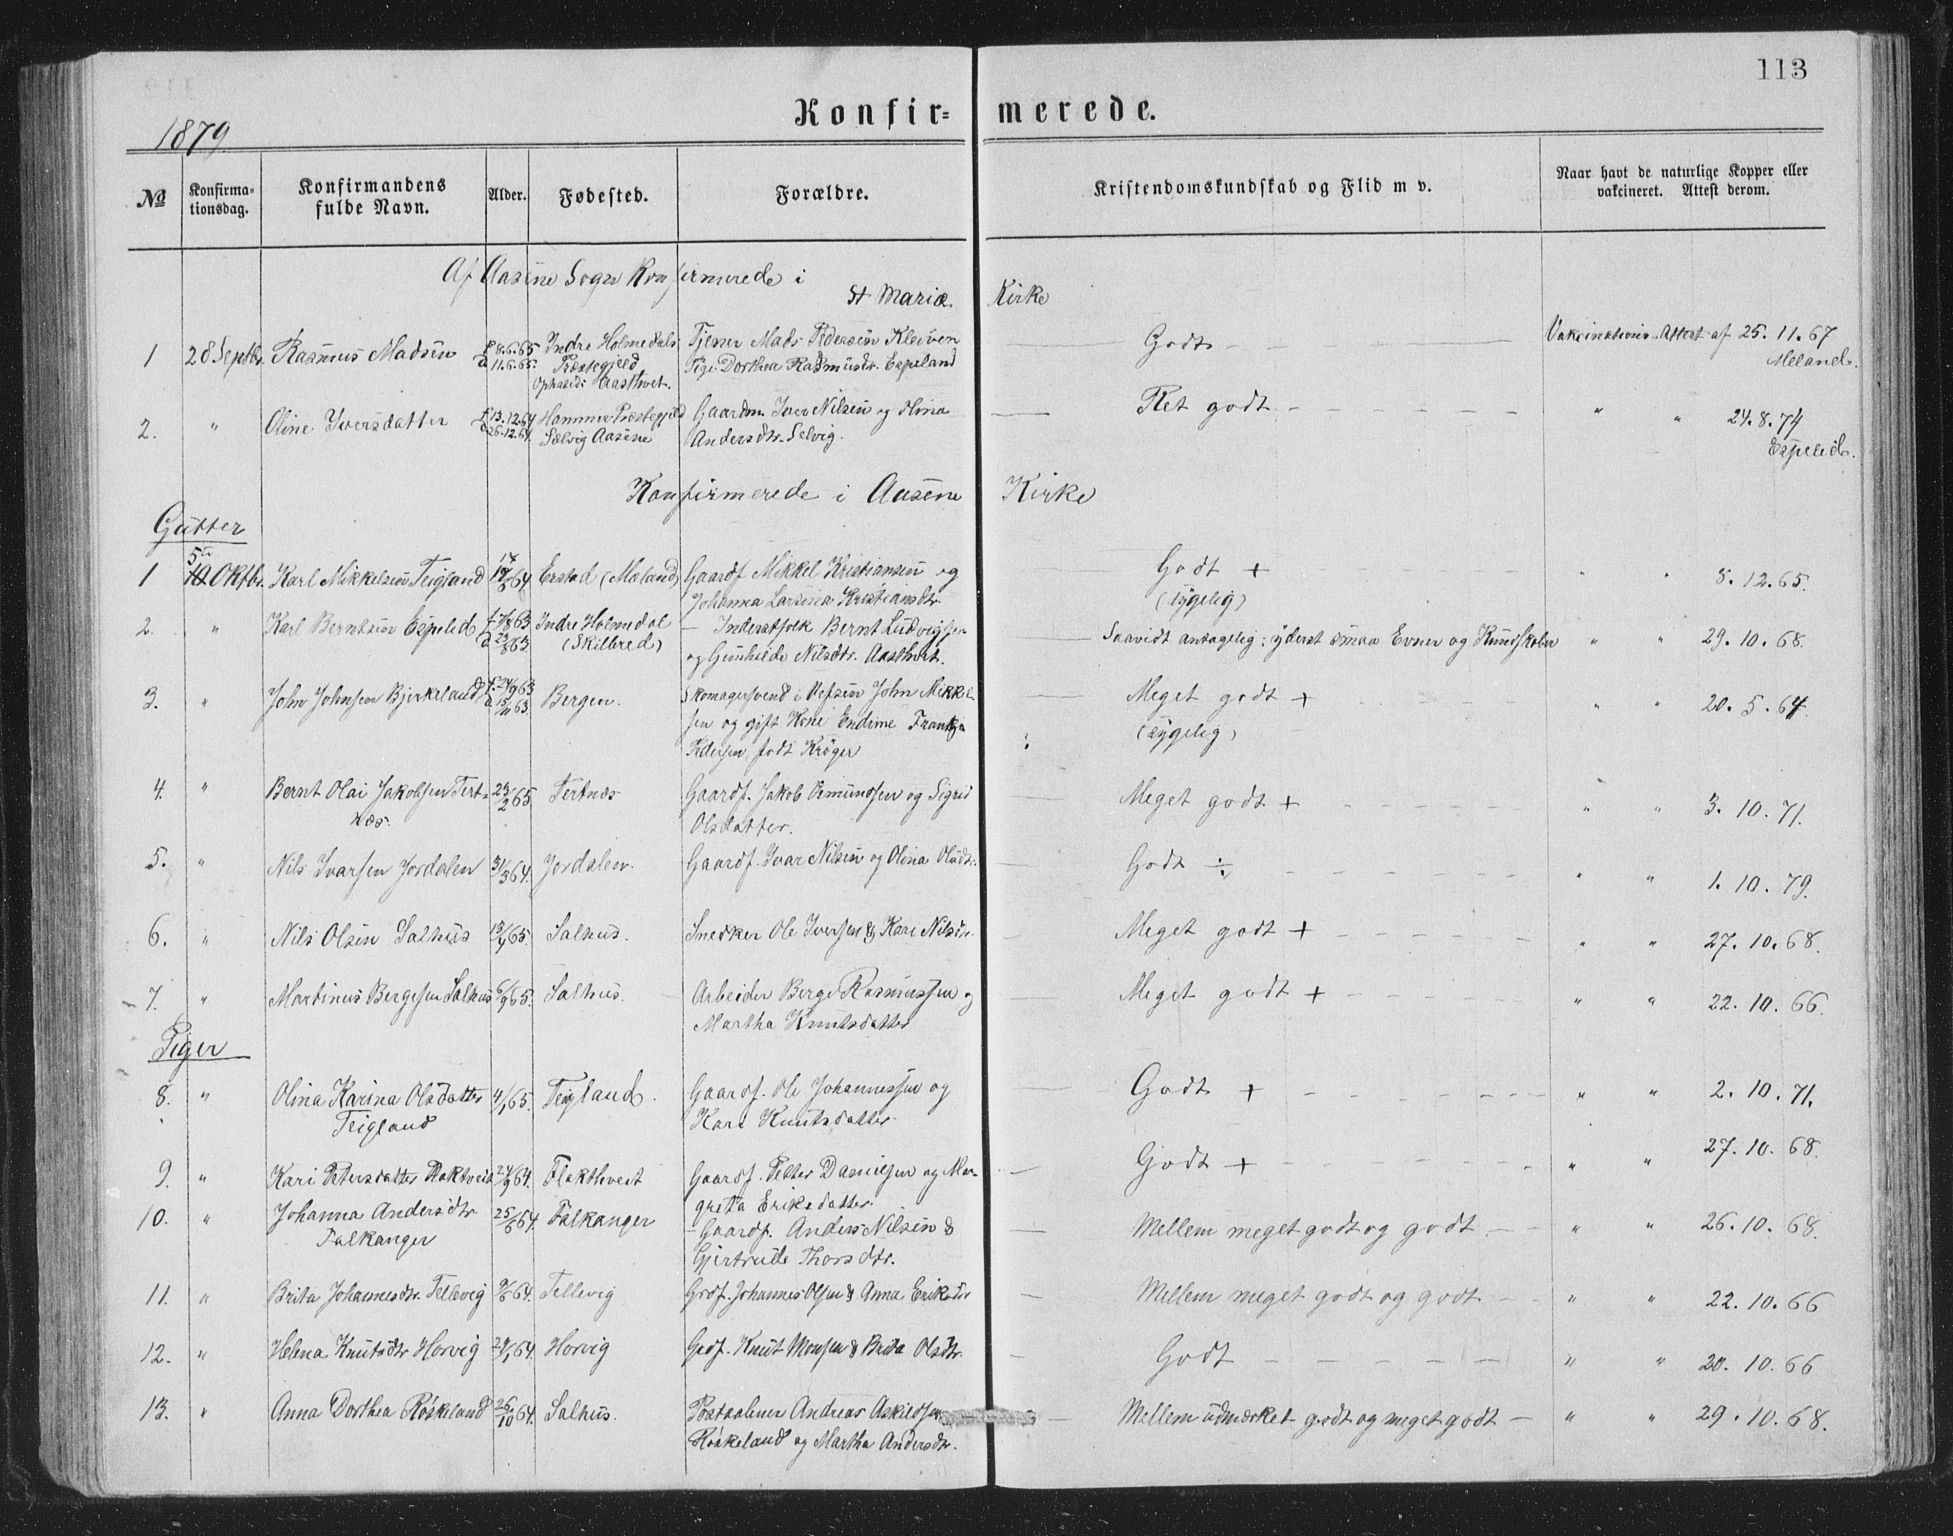 113
Konfir- merede.
1879.
№ Konfirma-tionsdag. Konfirmandens fulde Navn. Alder. Fødested. Forældre. Kristendomskundskab og Flid m v. Naar havt de naturlige Kopper eller vakcineret. Attest derom.
Af Aasene Sogn Konfirmerede i
St Mariæ Kirke
1 28 Septbr. Rasmus Madsen f 8.6.65 Indre Holmedals Tjener Mads Pedersen Kleiven Godt Vakcinations-Attest af 25.11.67
d 11.6.65. Præstegjeld Pige Dorthea Rasmusdtr. Espeland Meland.
Opholds: Aasthvet.
2. " Oline Iversdatter f 13.12.64 Hammer Præstegjeld Gaardm. Iver Nilsen og Olina Ret godt " " 24.8.74
d 26.12.64. Sælvig Aasene Andersdtr. Selvig. Espelid.
Konfirmerede i Aasene Kirke
Gutter
5te
1 10 Oktbr. Karl Mikkelsen Teigland Erstad (Mæland) Gaardf Mikkel Kristiansen og Godt + " " 8.12.65.
Johanna Larsina Kristiansdtr. (sygelig)
2. " Karl Berntsen Espelid Indre Holmedal - Inderstfolk Bernt Ludvigsen Saavidt antagelig: yderst smaa Evner og Kundskaber " " 29.10.68.
(Skilbred) og Gunhilde Nilsdtr. Aasthvet.
3. " John Johnsen Bjerkeland Bergen. Skomagersvend i Vefsen John Mikkel- Meget godt + " " 20.5.64.
sen og gift Kone Endrine (sygelig)
Pedersen, født Krøger
4. " Bernt Olai Jakobsen Tert- 23/2 65. Tertnæs Gaardf. Jakob Osmundsen og Sigrid Meget godt + " " 3.10.71.
næs. Olsdatter.
5. " Nils Ivarsen Jordalen 31/3 64. Jordalen. Gaardf. Ivar Nilsen og Olina Olsdtr. Godt ÷ " " 1.10.79.
6. " Nils Olsen Salhus 13/4 65. Salhus. Snedker Ole Iversen & Kari Nilsdtr. Meget godt + " " 27.10.68.
7. " Martinus Bergesen Salhus 6/9 65. Salhus. Arbeider Berge Rasmussen og Meget godt + " " 22.10.66.
Martha Knutsdatter
Piger
8. " Olina Karina Olsdatter 4/1 65. Teigland. Gaardf. Ole Johannessen og Godt + " " 2.10.71.
Teigland Kari Knutsdatter
9. " Kari Petersdatter Flaktveit 24/9 64. Flakthveit Gaardf. Petter Danielsen og Mar- Godt + " " 27.10.68.
greta Eriksdatter
10. " Johanna Andersdtr 25/6 64. Falkanger - Gaardf. Anders Nilsen & Mellem meget godt og godt " " 26.10.68.
Falkanger Gjertrude Thorsdtr.
11. " Brita Johannesdtr. Tellevig 9/6 64. Tellevig Grdf. Johannes Olsen & Anna Eriksdtr Mellem meget godt og godt " " 22.10.66
12. " Helena Knutsdtr Horvig 29/1 64. Horvig Grdf. Knut Monsen & Brita Olsdtr. Godt " " 20.10.66
13. " Anna Dorthea Røskeland 26/10 64. Salhus. Postaabner Andreas Askildsen Mellem udmærket godt og meget godt " " 29.10.68.
Røskeland og Martha Andersdtr.